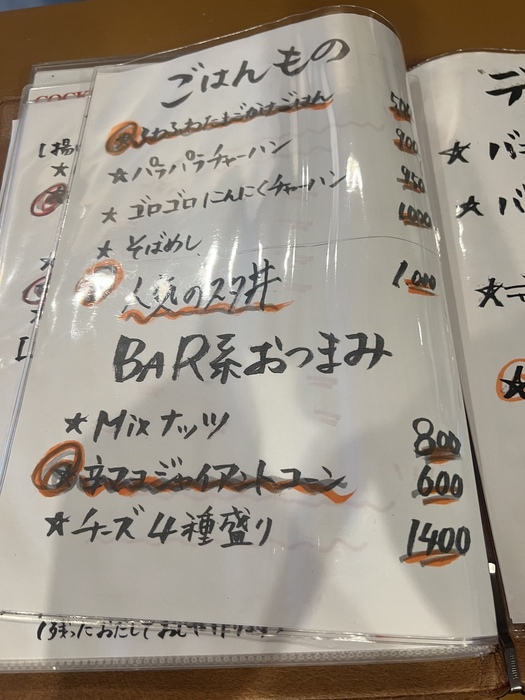 ごはんもの
★ふわふわたまごかけごはん 500
★パラパラチャーハン 900
★ゴロゴロにんにくチャーハン 950
★そばめし 1000
人気のスタ丼 1000
BAR系おつまみ
★Mixナッツ 800
★辛マヨジャイアントコーン 600
★チーズ4種盛り 1400